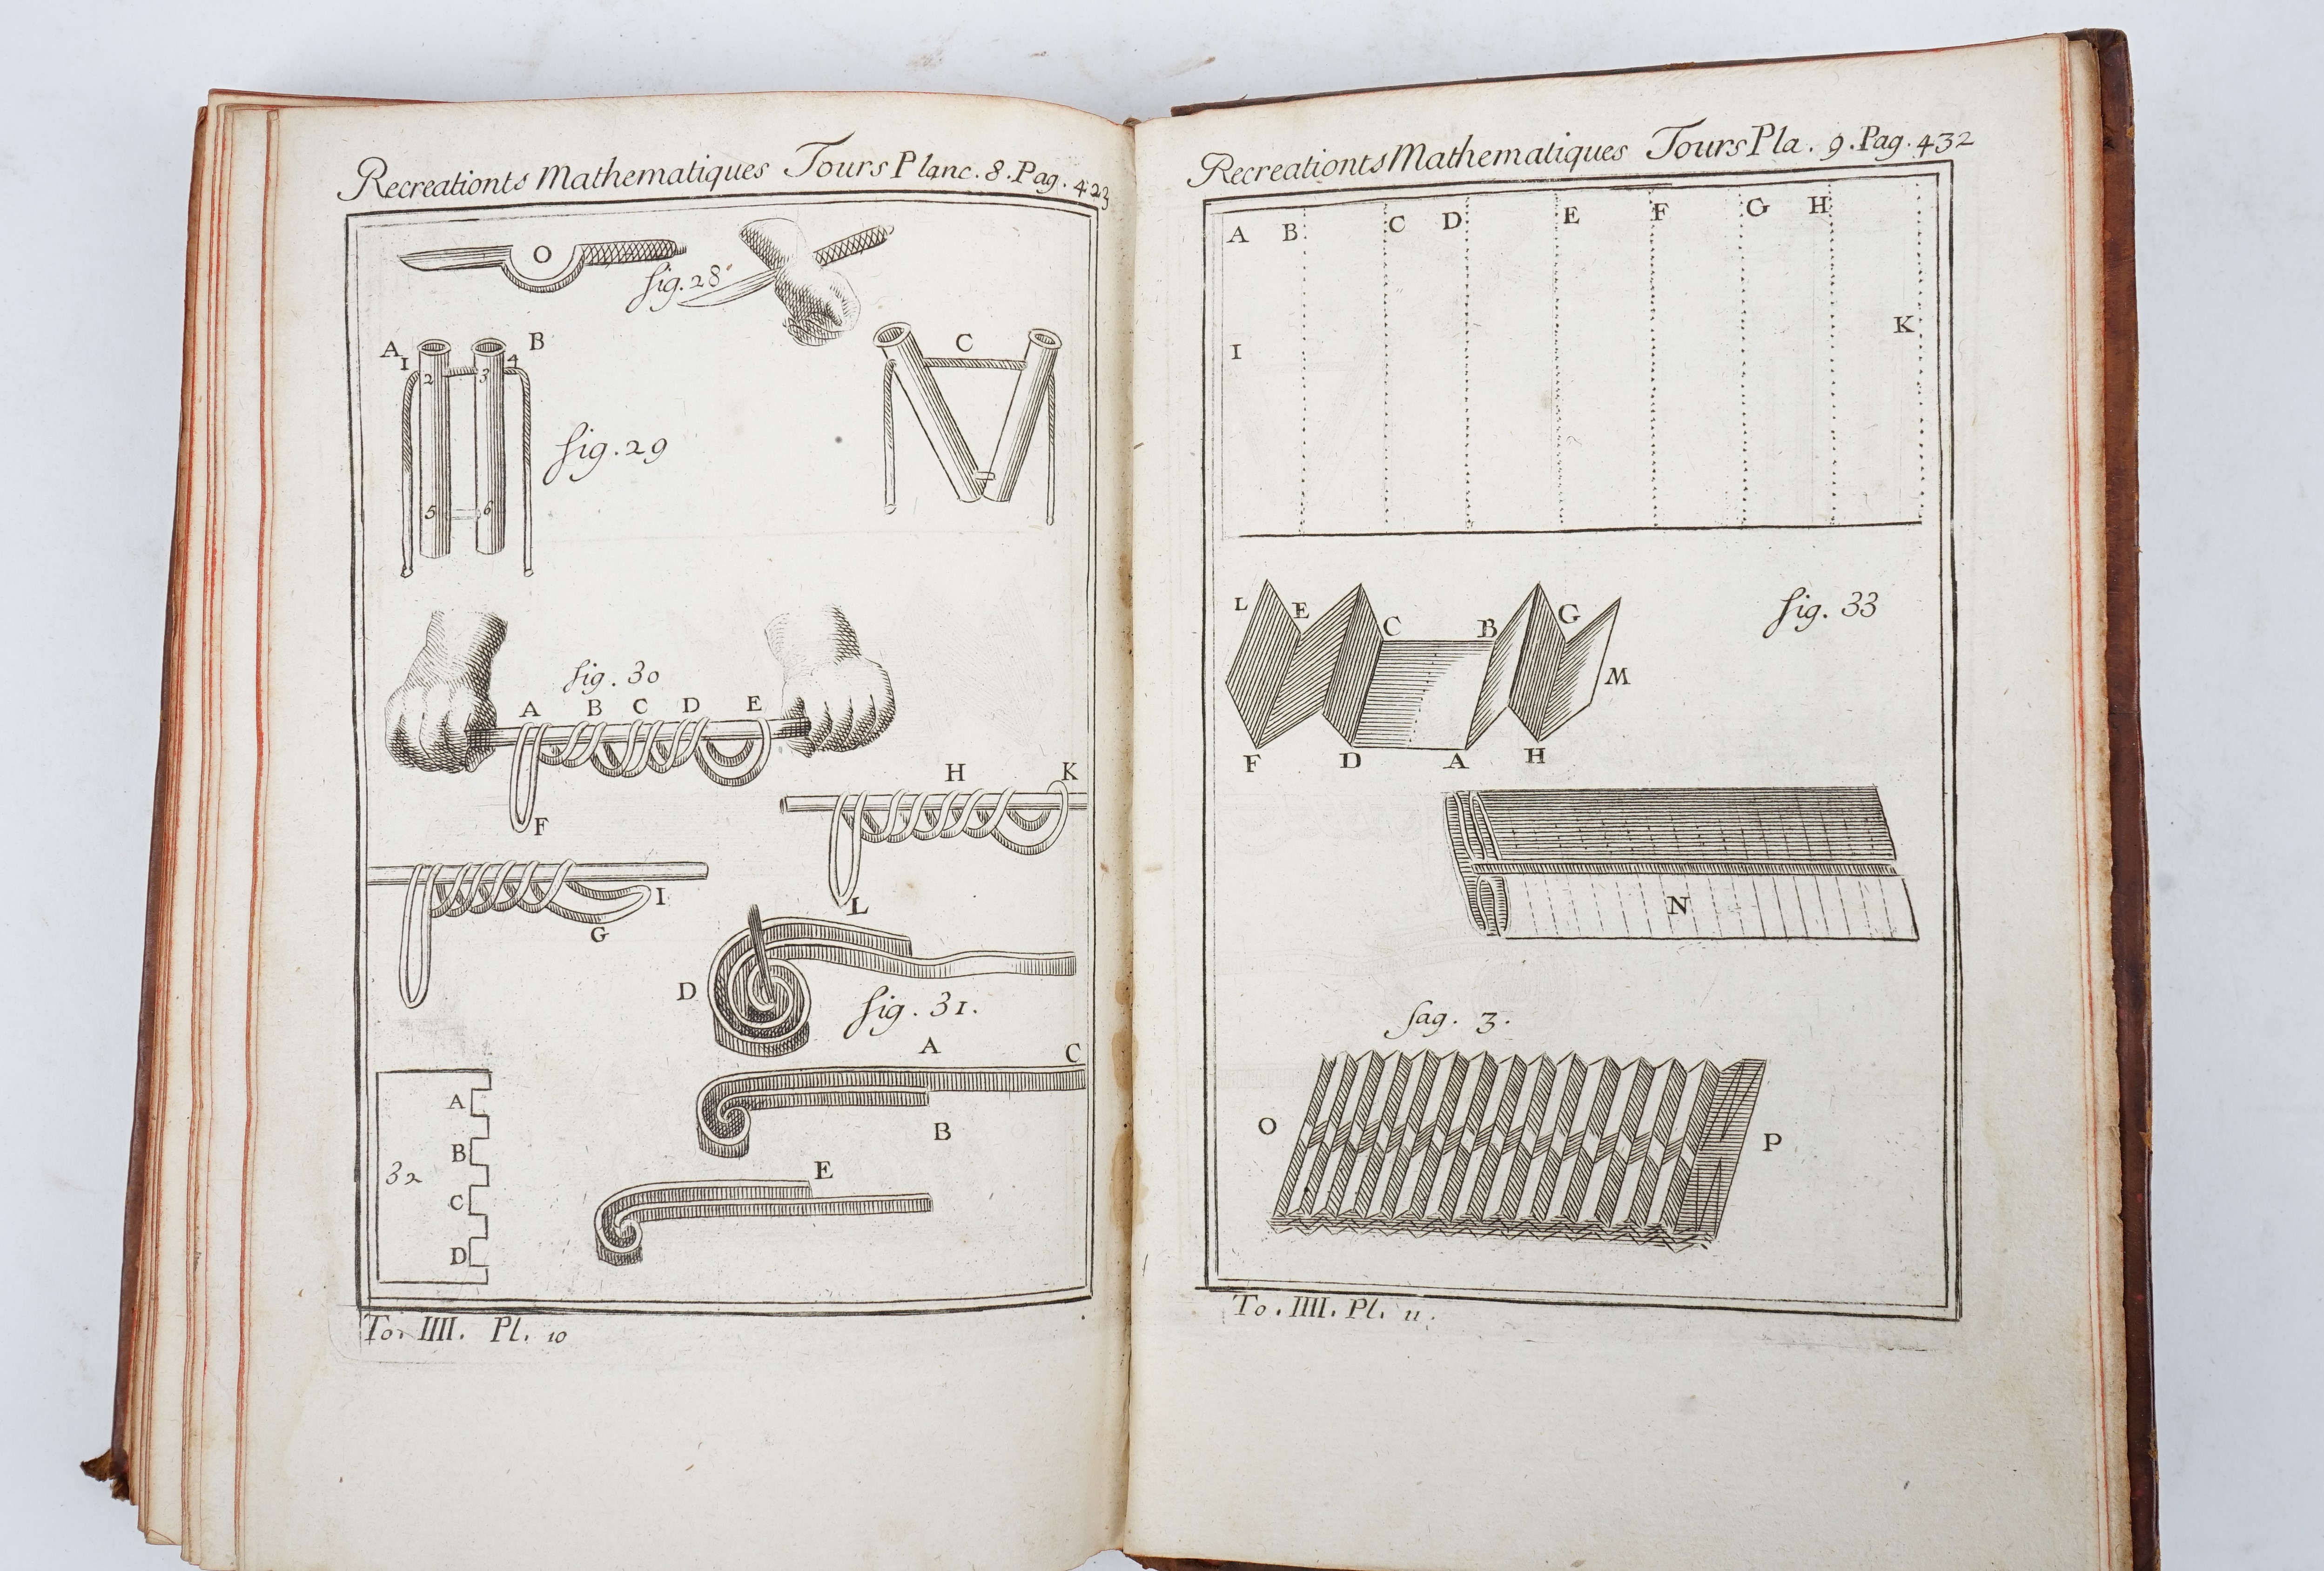 Recreationts Mathematiques Tours Planc. 8. Pag. 423
O
fig. 28
A
1
2
3
4
B
C
fig. 29
5
6
fig. 30
A B C D E
F
H
K
L
I
G
D
fig. 31.
A
C
B
E
32
A
B
C
D
To. IIII. Pl. 10
Recreationts Mathematiques Tours Pla. 9. Pag. 432
A B C D E F G H
I
K
fig. 33
L E C B G
M
F D A H
N
fag. 3.
O
P
To. IIII. Pl. 11.